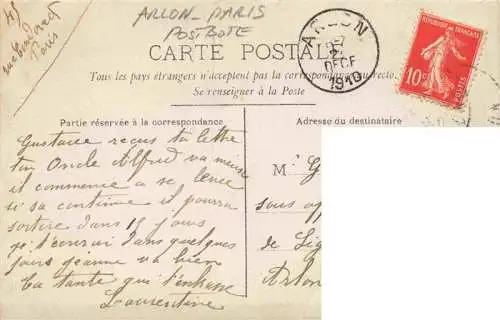 45
rue
Paris
ARLON - PARIS
POSTBOTE
CARTE POSTALE
Tous les pays étrangers n'acceptent pas la correspondance au recto.
Se renseigner à la Poste
ARLON
7
DECE
1910
REPUBLIQUE FRANÇAISE
10c
POSTES
Partie réservée à la correspondance
Adresse du destinataire
Gustave reçus ta lettre
ton Oncle Alfred va mieux
il commence a se lever
si sa continue il pourra
sortire dans 15 jours
je t'ecrirai dans quelques
jours jeanne va bien
ta tante qui t'enbrasse
Laurentine
M. G
sous
de
Arlon